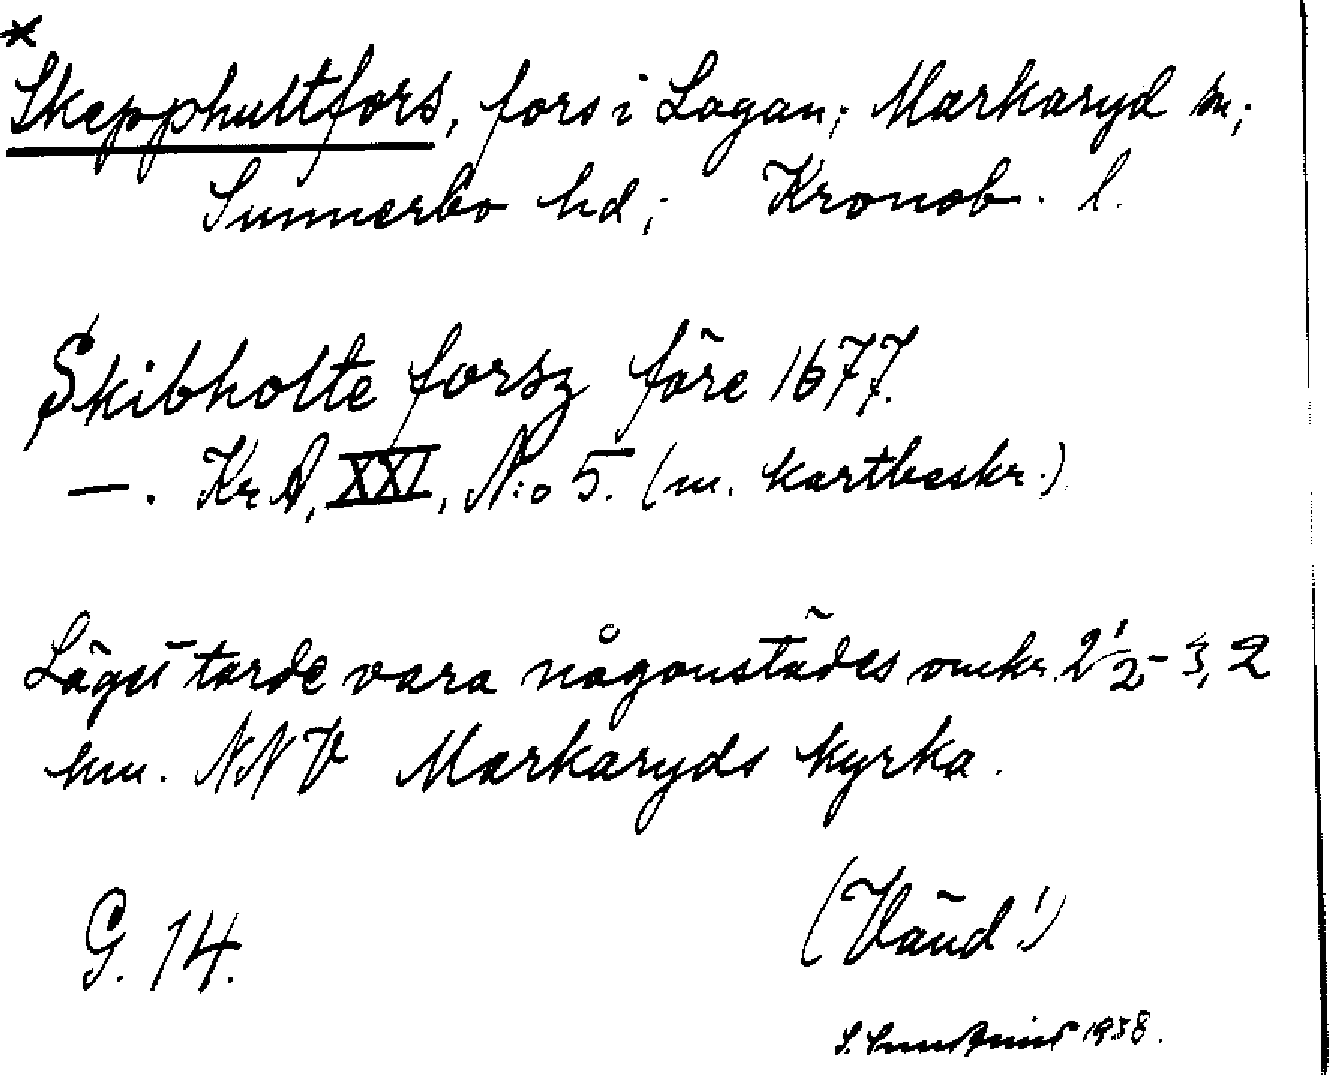 *
Skepphultfors, fors i Lagan; Markaryd sn;
Sunnerbo hd; Kronob. l.
Skibholte forsz före 1677.
—. KrA, XXI, N:o 5. (m. kartbeskr.)
Läget torde vara någonstädes omkr. 2 1/2 - 3,2
km. NNV Markaryds kyrka.
G. 14.
(Vänd!)
S. 1938.